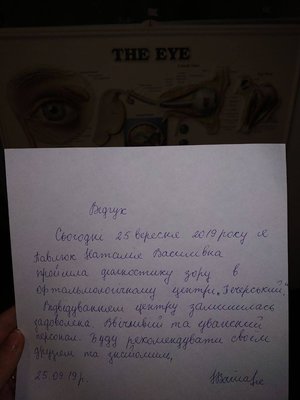 THE EYE
Відгук
Сьогодні 25 вересня 2019 року я
Павлюк Наталія Василівна
пройшла діагностику зору в
офтальмологічному центрі „Печерський".
Відвідуванням центру залишилась
задоволена. Ввічливий та уважний
персонал. Буду рекомендувати своїм
друзям та знайомим.
25.09.19 р.